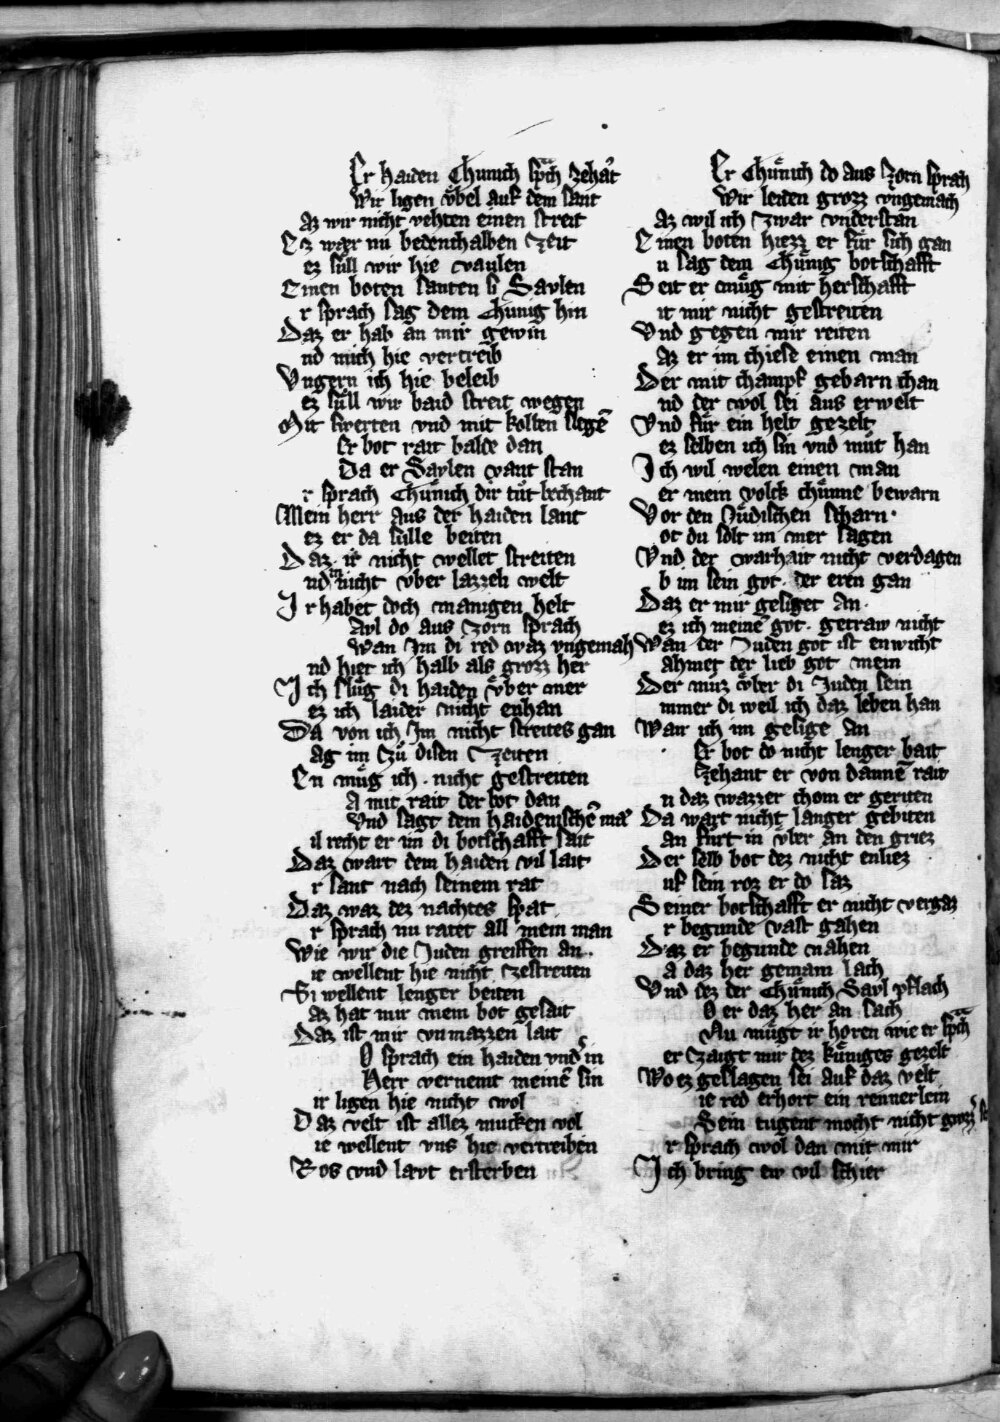 Er haiden Chunich sprch zehat
Wir ligen vͤbel auf dem sant
az wir nicht vehten einen streit
Ez wær nu bedenchalben zeit
ez sull wir hie vaylen
Einen boten santen si Saylen
r sprach sag dem Chunig hin
Daz er hab an mir gewin
nd mich hie vertreib
Vngern ich hie beleib
ez sull wir baid streit wegen
Mit swerten vnd mit kolben slegē
Er bot rait balde dan
Da er Saylen vant stan
r sprach Chuͤnich dir tuͦt bechant
Mein herr aus der haiden lant
ez er da sulle beiten
Daz ir nicht wellet streiten
nd in nicht vber lazzen welt
Ir habet doch manigen helt
Ayl do aus zorn sprach
Wan Im di red waz vngemah
nd hiet ich halb als grozz her
Ich sluͤg di haiden vͤber mer
ez ich laider nicht enhan
Da von ich Im nicht streites gan
ag im zuͦ disen zeiten
En muͤg ich nicht gestreiten
A mit rait der bot dan
Vnd sagt dem haidenischē man
il recht er im di botschafft sait
Daz wart dem haiden vil lait
r sant nach seinem rat
Daz waz dez nachtes spat
r sprach nu ratet all mein man
Wie wir die Juden greiffen an
ie wellent hie nicht zestreiten
Si wellent lenger beiten
az hat mir mein bot gesait
Daz ist mir vnmazzen lait
O sprach ein haiden vnd in
Herr vernemt meinē sin
ir ligen hie nicht wol
Daz velt ist allez mucken vol
ie wellent vns hie vertreiben
Ros vnd lavt ersterben
Er Chuͤnich do aus zorn sprach
Wir leiden grozz vngemach
az wil ich zwar vnderstan
Einen boten hiezz er fuͤr sich gan
u sag dem Chuͤnig botschafft
Seit er muͤg mit herschafft
it mir nicht gestreiten
Vnd gegen mir reiten
az er im chiese einen man
Der mit champf gebarn chan
nd der wol sei aus erwelt
Vnd fuͤr ein helt gezelt
ez selben ich sin vnd muͤt han
Ich wil welen einen man
er mein volck chuͤnne bewarn
Vor den Juͤdischen scharn
ot du solt im mer sagen
Vnd der warhait nicht verdagen
b im sein got der eren gan
Daz er mir gesiget an
ez ich meinē got getraw nicht
Wan der Juden got ist enwicht
ahmet der lieb got mein
Der muz vͤber di Juden sein
mmer di weil ich daz leben han
Wan ich im gesige an
Er bot do nicht lenger bait
Zehant er von dannē rait
u daz wazzer chom er geriten
Da wart nicht langer gebiten
an furt in vͤber an den griez
Der selb bot dez nicht enliez
uf sein roz er do saz
Seiner botschafft er nicht vergaz
r begunde vast gahen
Daz er begunde nahen
a daz her gemain lach
Vnd dez der Chuͤnich Sayl pflach
O er daz her an sach
Nu muͤgt ir horen wie er sprch
er zaigt mir dez kuͤniges gezelt
Wo ez geslagen sei auf daz velt
ie red erhort ein rennerlein
Sein tugent mocht nicht grozzer
r sprach wol dan mit mir
Ich bring ew vil schier